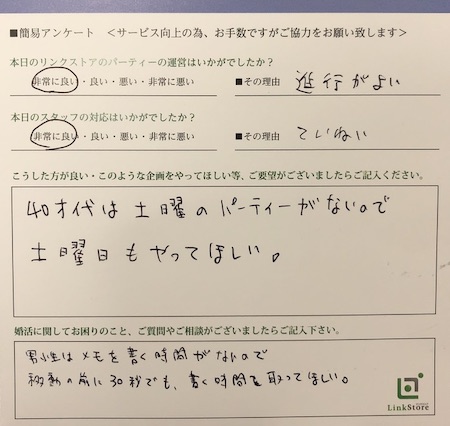 ■簡易アンケート　＜サービス向上の為、お手数ですがご協力をお願い致します＞
本日のリンクストアのパーティーの運営はいかがでしたか？
非常に良い・良い・悪い・非常に悪い　■その理由　進行がよい
本日のスタッフの対応はいかがでしたか？
非常に良い・良い・悪い・非常に悪い　■その理由　ていねい
こうした方が良い・このような企画をやってほしい等、ご要望がございましたらご記入ください。
40才代は土曜のパーティーがないので
土曜日もやってほしい。
婚活に関してお困りのこと、ご質問やご相談がございましたらご記入下さい。
男性はメモを書く時間がないので
移動の前に30秒でも、書く時間を取ってほしい。
LinkStore